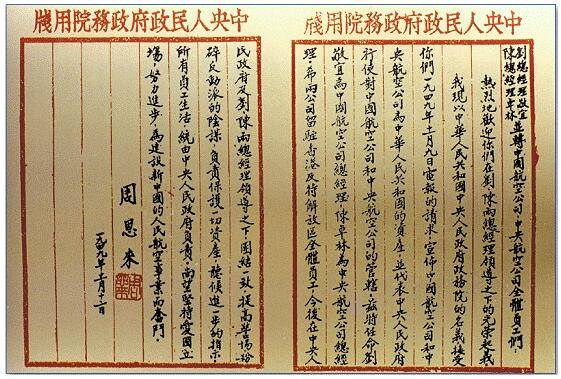 中央人民政府政務院用牋
劉總經理敬宜
陳總經理卓林
並轉中國航空公司、中央航空公司全體員工們:
熱烈地歡迎你們在劉、陳兩總經理領導之下的光榮起義
我現以中華人民共和國中央人民政府政務院的名義接受
你們一九四九年十一月九日電報的請求,宣佈中國航空公司和中
央航空公司為中華人民共和國的資產,並代表中央人民政府
行使對中國航空公司和中央航空公司的管轄,茲特任命劉
敬宜為中國航空公司總經理,陳卓林為中央航空公司總經
理,希兩公司留駐香港及待解放區全體員工今後在中央人
中央人民政府政務院用牋
民政府及劉、陳兩總經理領導之下,團結一致,提高警惕,粉
碎反動派的陰謀,負責保護一切資產,聽候進一步的指示
所有員工生活,統由中央人民政府負責,尚望堅持愛國立
場,努力進步,為建設新中國的人民航空事業而奮鬥。
周恩來
一九四九年十一月十二日